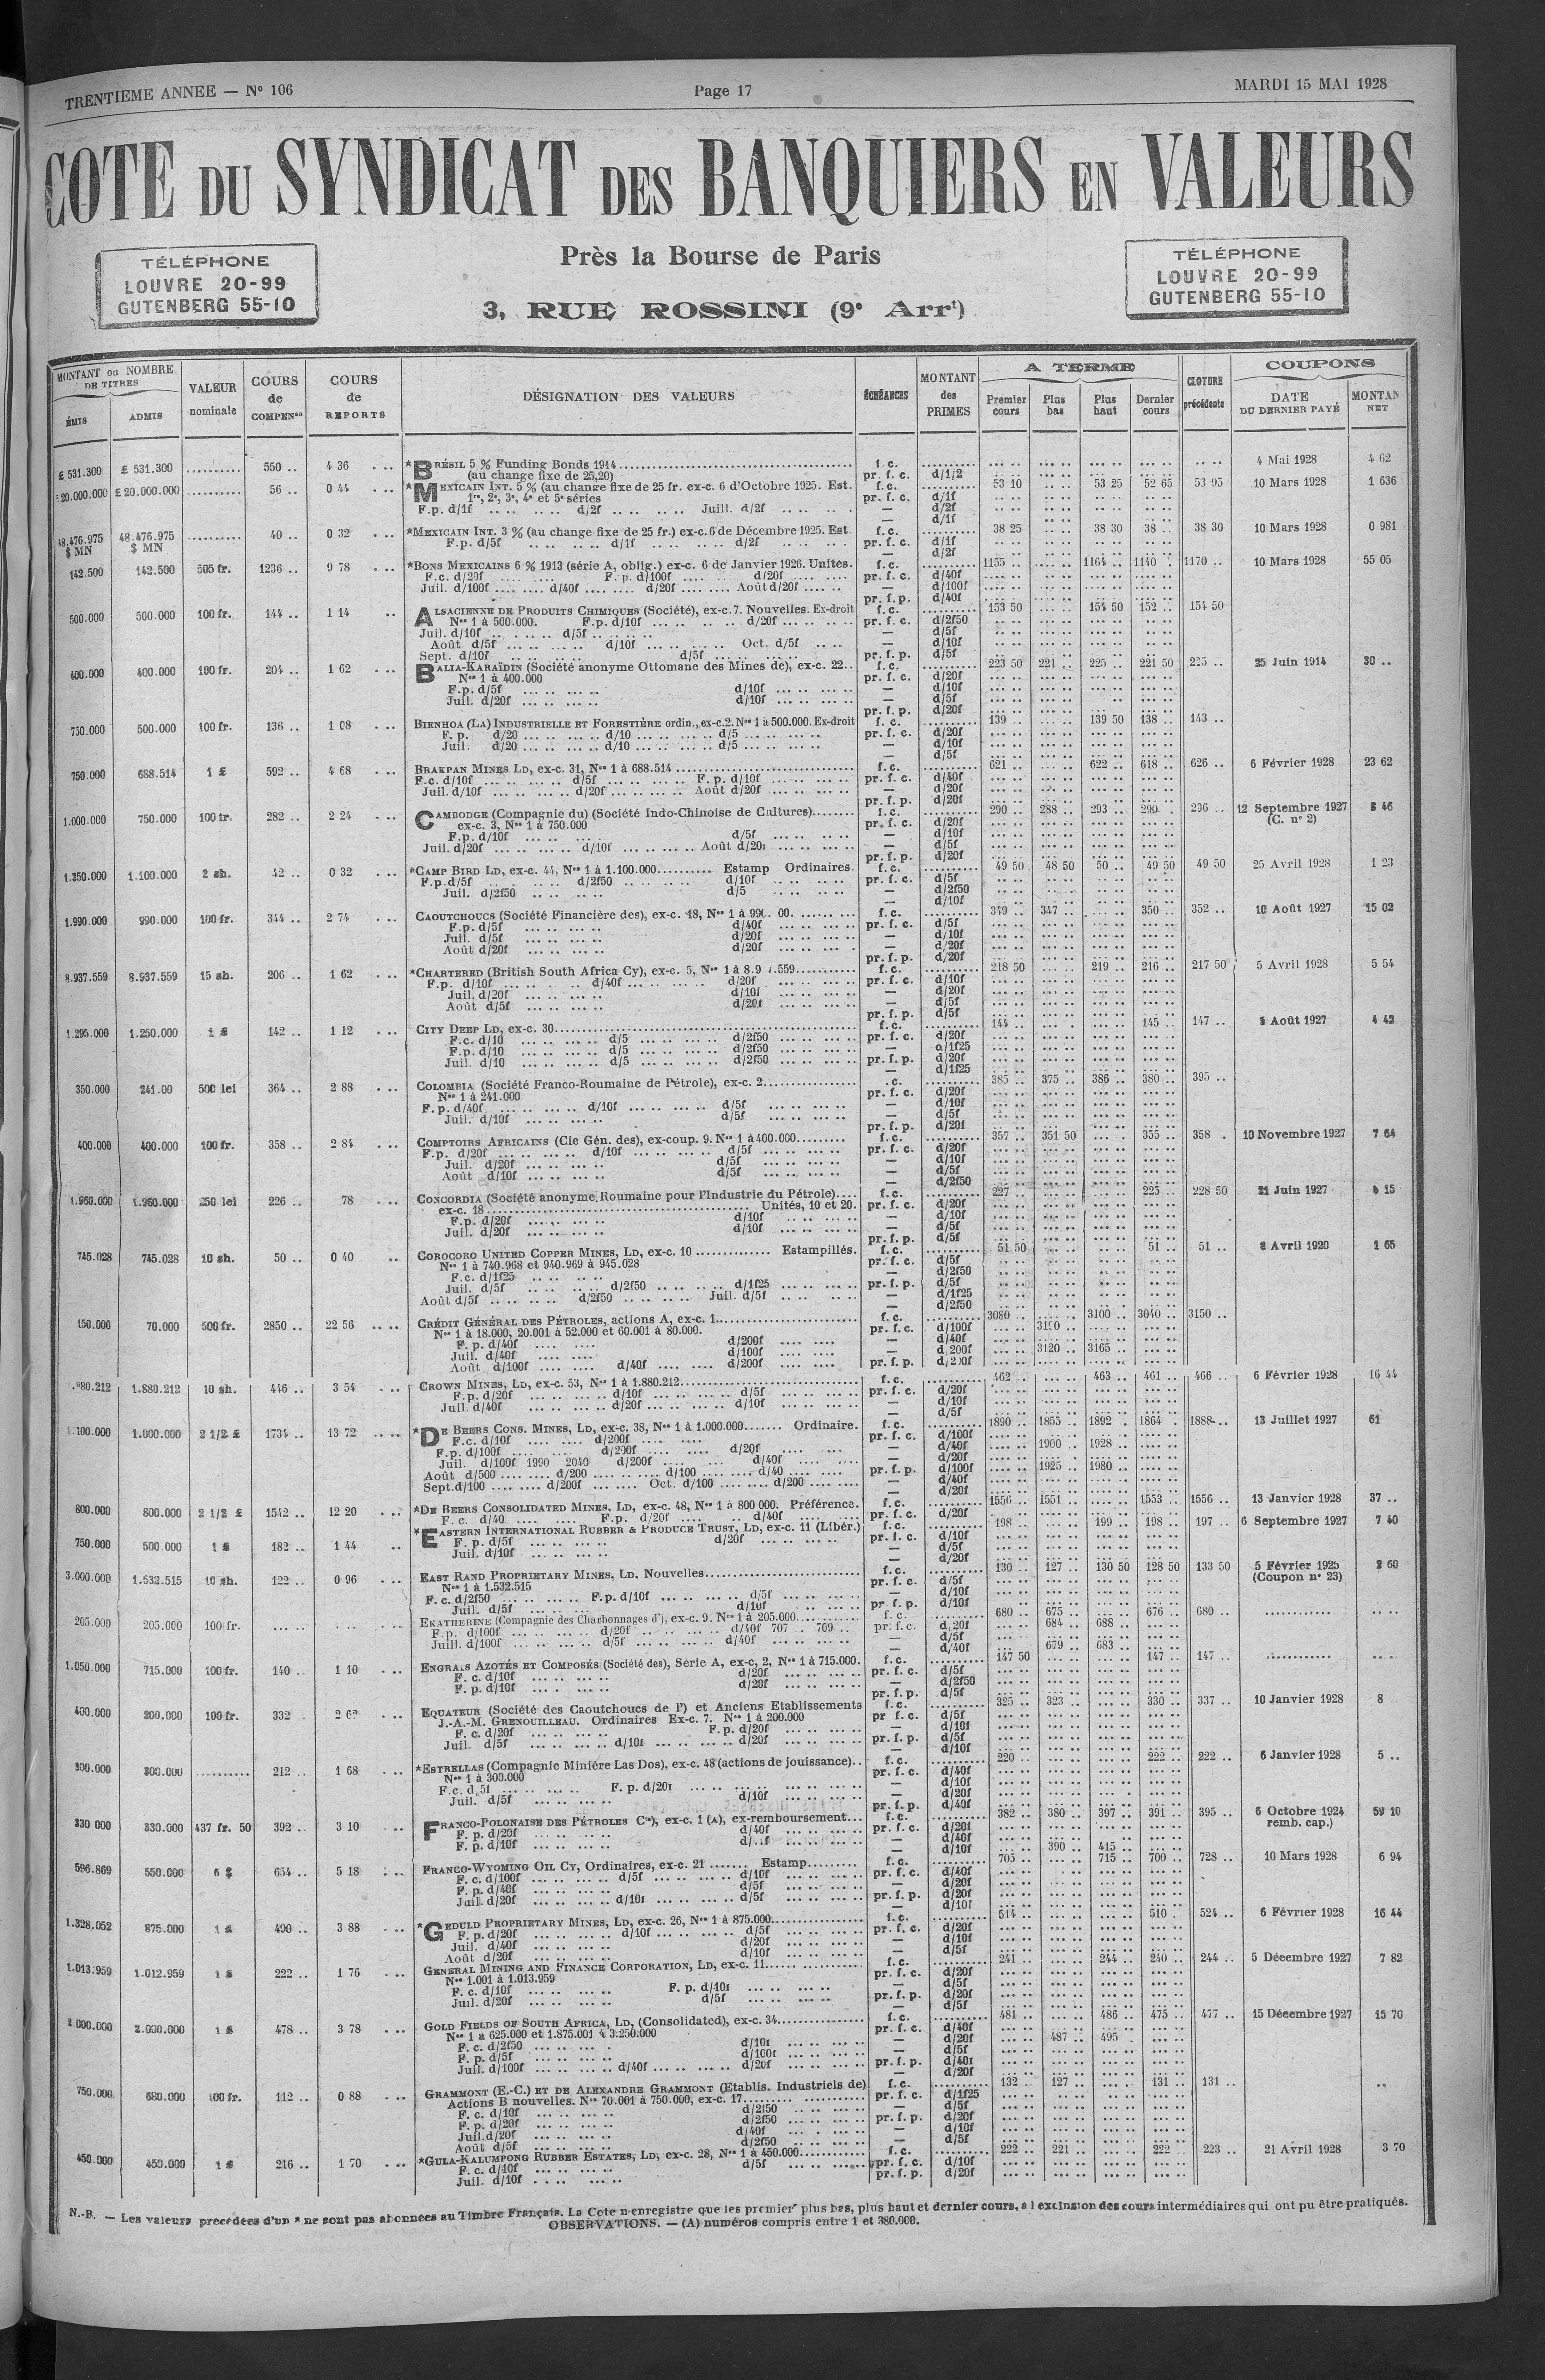 TRENTIEME ANNEE — Nº 106
Page 17
MARDI 15 MAI 1928
COTE DU SYNDICAT DES BANQUIERS EN VALEURS
TÉLÉPHONE
LOUVRE 20-99
GUTENBERG 55-10
Près la Bourse de Paris
3, RUE ROSSINI (9e Arrt)
TÉLÉPHONE
LOUVRE 20-99
GUTENBERG 55-10
MONTANT ou NOMBRE DE TITRES
ÉMIS ADMIS
VALEUR nominale
COURS de COMPENon
COURS de REPORTS
DÉSIGNATION DES VALEURS
ÉCHÉANCES
MONTANT des PRIMES
A TERME
Premier cours Plus bas Plus haut Dernier cours
CLOTURE précédente
COUPONS
DATE DU DERNIER PAYÉ
MONTAN NET
£ 531.300 £ 531.300 .......... 550 .. 4 36 *BRÉSIL 5 % Funding Bonds 1914 f.c. 4 Mai 1928 4 62
(au change fixe de 25,20) pr. f. c. d/1/2
£ 20.000.000 .......... 56 .. 0 44 *MEXICAIN INT. 5 % (au change fixe de 25 fr. ex-c. 6 d'Octobre 1925. Est. f.c. 53 10 53 25 52 65 53 95 10 Mars 1928 1 636
1re, 2e, 3e, 4e et 5e séries pr. f. c. d/1f
F.p. d/1f d/2f Juill. d/2f — d/2f
— d/1f
48.476.975 $ MN 48.476.975 $ MN .......... 40 .. 0 32 *MEXICAIN INT. 3 % (au change fixe de 25 fr.) ex-c. 6 de Décembre 1925. Est. f.c. 38 25 38 30 38 .. 38 30 10 Mars 1928 0 981
F.p. d/5f d/1f d/2f pr. f. c. d/1f
— d/2f
142.500 142.500 505 fr. 1236 .. 9 78 *BONS MEXICAINS 6 % 1913 (série A, oblig.) ex-c. 6 de Janvier 1926. Unités. f.c. 1155 .. 1164 .. 1140 .. 1170 .. 10 Mars 1928 55 05
F.c. d/20f F. p. d/100f d/20f pr. f. c. d/40f
Juil. d/100f d/40f d/20f Août d/20f — d/100f
pr. f. p. d/40f
500.000 500.000 100 fr. 144 .. 1 14 ALSACIENNE DE PRODUITS CHIMIQUES (Société), ex-c. 7. Nouvelles. Ex-droit f.c. 153 50 154 50 152 .. 154 50
Nos 1 à 500.000. F.p. d/10f d/20f pr. f. c. d/2f50
Juil. d/10f d/5f — d/5f
Août d/5f d/10f Oct. d/5f — d/10f
Sept. d/10f d/5f pr. f. p. d/5f
400.000 400.000 100 fr. 204 .. 1 62 BALIA-KARAÏDIN (Société anonyme Ottomane des Mines de), ex-c. 22.. f.c. 223 50 221 .. 225 .. 221 50 225 .. 25 Juin 1914 30 ..
Nos 1 à 400.000 pr. f. c. d/20f
F.p. d/5f d/10f — d/10f
Juil. d/20f d/10f — d/5f
pr. f. p. d/20f
750.000 500.000 100 fr. 136 .. 1 08 BIENHOA (LA) INDUSTRIELLE ET FORESTIÈRE ordin., ex-c. 2. Nos 1 à 500.000. Ex-droit f. c. 139 .. 139 50 138 .. 143 ..
F. p. d/20 d/10 d/5 pr. f. c. d/20f
Juil. d/20 d/10 d/5 — d/10f
— d/5f
750.000 688.514 1 £ 592 .. 4 68 BRAKPAN MINES LD, ex-c. 31, Nos 1 à 688.514 f.c. 621 .. 622 .. 618 .. 626 .. 6 Février 1928 23 62
F.c. d/10f d/5f F. p. d/10f pr. f. c. d/40f
Juil. d/10f d/20f Août d/20f — d/20f
pr. f. p. d/20f
1.000.000 750.000 100 fr. 282 .. 2 24 CAMBODGE (Compagnie du) (Société Indo-Chinoise de Cultures) f.c. 290 .. 288 .. 293 .. 290 . 296 .. 12 Septembre 1927 8 46
ex-c. 3, Nos 1 à 750.000 pr. f. c. d/20f (C. nº 2)
F.p. d/10f d/5f — d/10f
Juil. d/20f d/10f Août d/20f — d/5f
pr. f. p. d/20f
1.350.000 1.100.000 2 sh. 42 .. 0 32 *CAMP BIRD LD, ex-c. 44, Nos 1 à 1.100.000 Estamp Ordinaires. f.c. 49 50 48 50 50 .. 49 50 49 50 25 Avril 1928 1 23
F.p. d/5f d/2f50 d/10f pr. f. c. d/5f
Juil. d/2f50 d/5 — d/2f50
— d/10f
1.990.000 990.000 100 fr. 344 .. 2 74 CAOUTCHOUCS (Société Financière des), ex-c. 18, Nos 1 à 99 . 00. f.c. 349 .. 347 .. 350 .. 352 .. 10 Août 1927 15 02
F.p. d/5f d/40f pr. f. c. d/5f
Juil. d/5f d/20f — d/10f
Août d/20f d/20f — d/20f
pr. f. p. d/20f
8.937.559 8.937.559 15 sh. 206 .. 1 62 *CHARTERED (British South Africa Cy), ex-c. 5, Nos 1 à 8.9 .559 f.c. 218 50 219 .. 216 .. 217 50 5 Avril 1928 5 54
F.p. d/10f d/40f d/20f pr. f. c. d/10f
Juil. d/20f d/10f — d/20f
Août d/5f d/20f — d/5f
pr. f. p. d/5f
1.295.000 1.250.000 1 £ 142 .. 1 12 CITY DEEP LD, ex-c. 30 f.c. 144 .. 145 .. 147 .. 5 Août 1927 4 42
F.c. d/10 d/5 d/2f50 pr. f. c. d/20f
F.p. d/10 d/5 d/2f50 — d/1f25
Juil. d/10 d/5 d/2f50 pr. f. p. d/20f
— d/1f25
350.000 241.00 500 lei 364 .. 2 88 COLOMBIA (Société Franco-Roumaine de Pétrole), ex-c. 2 .c. 385 .. 375 .. 386 .. 380 .. 395 ..
Nos 1 à 241.000 pr. f. c. d/20f
F. p. d/40f d/10f d/5f — d/10f
Juil. d/10f d/5f — d/5f
pr. f. p. d/20f
400.000 400.000 100 fr. 358 .. 2 84 COMPTOIRS AFRICAINS (Cie Gén. des), ex-coup. 9. Nos 1 à 400.000 f.c. 357 .. 351 50 355 .. 358 . 10 Novembre 1927 7 64
F.p. d/20f d/10f d/5f pr. f. c. d/20f
Juil. d/20f d/5f — d/10f
Août d/10f d/5f — d/5f
— d/2f50
1.960.000 1.960.000 250 lei 226 .. 78 CONCORDIA (Société anonyme Roumaine pour l'Industrie du Pétrole) f.c. 227 .. 225 .. 228 50 21 Juin 1927 5 15
ex-c. 18 Unités, 10 et 20. pr. f. c. d/20f
F.p. d/20f d/10f — d/10f
Juil. d/20f d/10f — d/5f
pr. f. p. d/5f
745.028 745.028 10 sh. 50 .. 0 40 COROCORO UNITED COPPER MINES, LD, ex-c. 10 Estampillés. f.c. 51 50 51 .. 51 .. 8 Avril 1920 1 65
Nos 1 à 740.968 et 940.969 à 945.028 pr. f. c. d/5f
F.c. d/1f25 — d/2f50
Juil. d/5f d/2f50 d/1f25 pr. f. p. d/5f
Août d/5f d/2f50 Juil. d/5f — d/1f25
— d/2f50
150.000 70.000 500 fr. 2850 .. 22 56 CRÉDIT GÉNÉRAL DES PÉTROLES, actions A, ex-c. 1 f.c. 3080 .. 3100 .. 3040 .. 3150 ..
Nos 1 à 18.000, 20.001 à 52.000 et 60.001 à 80.000. pr. f. c. d/100f 3100 ..
F. p. d/40f d/200f — d/40f
Juil. d/40f d/100f — d/200f 3120 .. 3165 ..
Août d/100f d/40f d/200f pr. f. p. d/200f
.880.212 1.880.212 10 sh. 446 .. 3 54 CROWN MINES, LD, ex-c. 53, Nos 1 à 1.880.212 f.c. 462 .. 463 .. 461 .. 466 .. 6 Février 1928 16 44
F.p. d/20f d/10f d/5f pr. f. c. d/20f
Juil. d/40f d/20f d/10f — d/10f
— d/5f
1.100.000 1.000.000 2 1/2 £ 1734 .. 13 72 *DE BEERS CONS. MINES, LD, ex-c. 38, Nos 1 à 1.000.000 Ordinaire. f.c. 1890 .. 1855 .. 1892 . 1864 .. 1888 .. 13 Juillet 1927 61
F.c. d/10f d/200f pr. f. c. d/100f
F.p. d/100f d/200f d/20f — d/40f 1900 .. 1928 ..
Juil. d/100f 1990 2040 d/200f d/40f — d/20f
Août d/500 d/200 d/100 d/40 pr. f. p. d/100f 1925 .. 1980 ..
Sept. d/100 d/200f Oct. d/100 d/200 — d/40f
— d/20f
800.000 800.000 2 1/2 £ 1542 .. 12 20 *DE BEERS CONSOLIDATED MINES, LD, ex-c. 48, Nos 1 à 800 000. Préférence. f.c. 1556 .. 1551 .. 1553 .. 1556 .. 13 Janvier 1928 37 ..
F. c. d/40 F.p. d/20f d/40f pr. f. c. d/20f
750.000 500.000 1 £ 182 .. 1 44 *EASTERN INTERNATIONAL RUBBER & PRODUCE TRUST, LD, ex-c. 11 (Libér.) f.c. 198 .. 199 .. 198 .. 197 .. 6 Septembre 1927 7 40
F. p. d/5f d/20f pr. f. c. d/10f
Juil. d/10f — d/5f
— d/20f
3.000.000 1.532.515 10 sh. 122 .. 0 96 EAST RAND PROPRIETARY MINES, LD, Nouvelles f.c. 130 .. 127 .. 130 50 128 50 133 50 5 Février 1925 3 60
Nos 1 à 1.532.515 pr. f. c. d/5f (Coupon nº 23)
F. c. d/2f50 F.p. d/10f d/5f — d/10f
Juil. d/5f d/10f pr. f. p. d/10f
205.000 205.000 100 fr. EKATHERINE (Compagnie des Charbonnages d'), ex-c. 9. Nos 1 à 205.000 f. c. 680 .. 675 .. 676 .. 680 ..
F.p. d/100f d/20f d/40f 707 .. 709 .. pr. f.c. d/20f 684 .. 688 ..
Juill. d/100f d/5f d/40f — d/5f
— d/40f 679 .. 683 ..
1.050.000 715.000 100 fr. 140 .. 1 10 ENGRAIS AZOTÉS ET COMPOSÉS (Société des), Série A, ex-c, 2, Nos 1 à 715.000. f.c. 147 50 147 .. 147 ..
F. c. d/10f d/20f pr. f. c. d/5f
F. p. d/10f d/20f — d/2f50
pr. f. p. d/5f
400.000 200.000 100 fr. 332 2 62 EQUATEUR (Société des Caoutchoucs de l') et Anciens Etablissements f.c. 325 .. 323 .. 330 .. 337 .. 10 Janvier 1928 8
J.-A.-M. GRENOUILLEAU. Ordinaires Ex-c. 7. Nos 1 à 200.000 pr f. c. d/5f
F. c. d/20f F. p. d/20f — d/10f
Juil. d/5f d/10f d/20f pr. f. p. d/5f
— d/10f
300.000 300.000 .......... 212 .. 1 68 *ESTRELLAS (Compagnie Minière Las Dos), ex-c. 48 (actions de jouissance) f.c. 220 .. 222 .. 222 .. 6 Janvier 1928 5 ..
Nos 1 à 300.000 pr. f. c. d/40f
F.c. d/5f F. p. d/20f — d/10f
Juil. d/5f d/10f — d/20f
pr. f. p. d/40f
330 000 330.000 437 fr. 50 392 .. 3 10 FRANCO-POLONAISE DES PÉTROLES Cie), ex-c. 1 (A), ex-remboursement f.c. 382 .. 380 .. 397 .. 391 .. 395 .. 6 Octobre 1924 59 10
F. p. d/20f d/40f pr. f. c. d/20f remb. cap.)
F. p. d/10f — d/40f
— d/10f 390 .. 415 ..
596.869 550.000 6 $ 654 .. 5 18 FRANCO-WYOMING OIL CY, Ordinaires, ex-c. 21 Estamp. f.c. 705 .. 715 .. 700 .. 728 .. 10 Mars 1928 6 94
F. c. d/100f d/5f d/10f pr. f. c. d/40f
F. p. d/40f d/5f — d/20f
Juil. d/20f d/10f d/5f pr. f. p. d/20f
— d/10f
1.328.052 875.000 1 £ 490 .. 3 88 *GEDULD PROPRIETARY MINES, LD, ex-c. 26, Nos 1 à 875.000 f.c. 514 .. 510 . 524 .. 6 Février 1928 16 44
F. p. d/20f d/10f d/5f pr. f. c. d/20f
Juil. d/40f d/20f — d/10f
Août d/20f d/10f — d/5f
1.013.959 1.012.959 1 £ 222 .. 1 76 GENERAL MINING AND FINANCE CORPORATION, LD, ex-c. 11 f.c. 241 .. 244 .. 240 .. 244 .. 5 Décembre 1927 7 82
Nos 1.001 à 1.013.959 pr. f. c. d/20f
F. c. d/10f F. p. d/10f — d/5f
Juil. d/20f d/5f pr. f. p. d/20f
— d/5f
2.000.000 2.000.000 1 £ 478 .. 3 78 GOLD FIELDS OF SOUTH AFRICA, LD, (Consolidated), ex-c. 34 f.c. 481 .. 486 .. 475 .. 477 .. 15 Décembre 1927 15 70
Nos 1 à 625.000 et 1.875.001 à 3.250.000 pr. f. c. d/40f
F. c. d/2f50 d/10f — d/20f 487 .. 495 .
F. p. d/5f d/100f — d/5f
Juil. d/100f d/40f d/20f pr. f. p. d/40f
— d/20f
750.000 680.000 100 fr. 112 .. 0 88 GRAMMONT (E.-C.) ET DE ALEXANDRE GRAMMONT (Etablis. Industriels de) f.c. 132 127 .. 131 .. 131 ..
Actions B nouvelles. Nos 70.001 à 750.000, ex-c. 17 pr. f. c. d/1f25
F. c. d/10f d/2f50 — d/5f
F. p. d/20f d/2f50 pr. f. p. d/20f
Juil. d/20f d/40f — d/10f
Août d/5f d/2f50 — d/5f
450.000 450.000 1 £ 216 .. 1 70 *GULA-KALUMPONG RUBBER ESTATES, LD, ex-c. 28, Nos 1 à 450.000 f.c. 222 .. 221 .. 222 .. 223 .. 21 Avril 1928 3 70
F. c. d/10f d/5f pr. f. c. d/10f
Juil. d/10f pr. f. p. d/20f
N.-B. — Les valeurs précédées d'un * ne sont pas abonnées au Timbre Français. La Cote n'enregistre que les premier plus bas, plus haut et dernier cours, à l'exclusion des cours intermédiaires qui ont pu être pratiqués.
OBSERVATIONS. — (A) numéros compris entre 1 et 380.000.